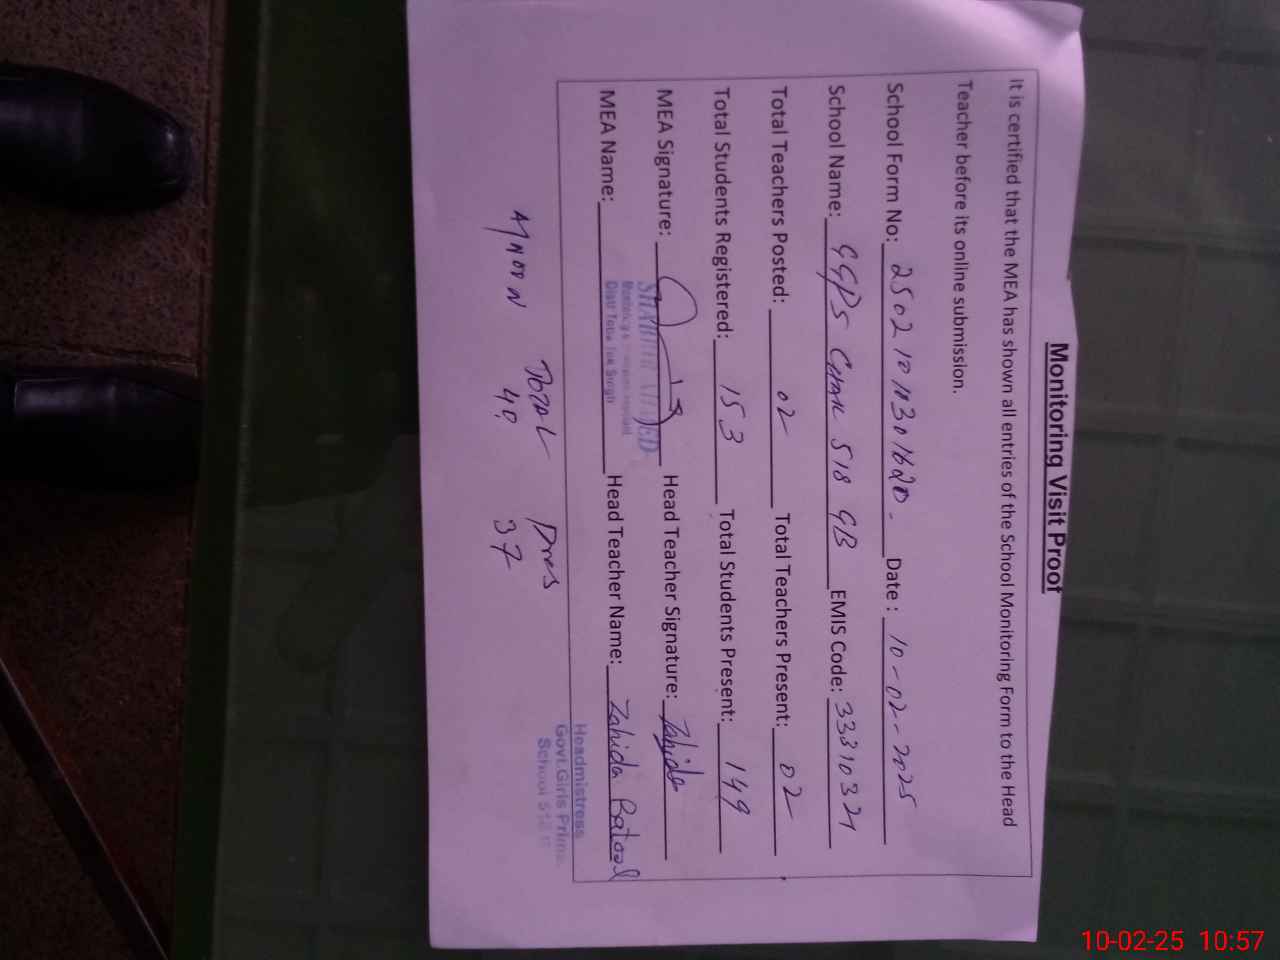 Monitoring Visit Proof
It is certified that the MEA has shown all entries of the School Monitoring Form to the Head
Teacher before its online submission.
School Form No: 25021011301620. Date : 10-02-2025
School Name: GGPS CHAK 518 GB EMIS Code: 33310321
Total Teachers Posted: 02 Total Teachers Present: 02
Total Students Registered: 153 Total Students Present: 149
MEA Signature: Head Teacher Signature: Zahida
MEA Name: Head Teacher Name: Zahida Batool
Distt Toba Tek Singh
Headmistress
Govt.Girls Prim
School 518
Total Pres
40 37
10-02-25 10:57